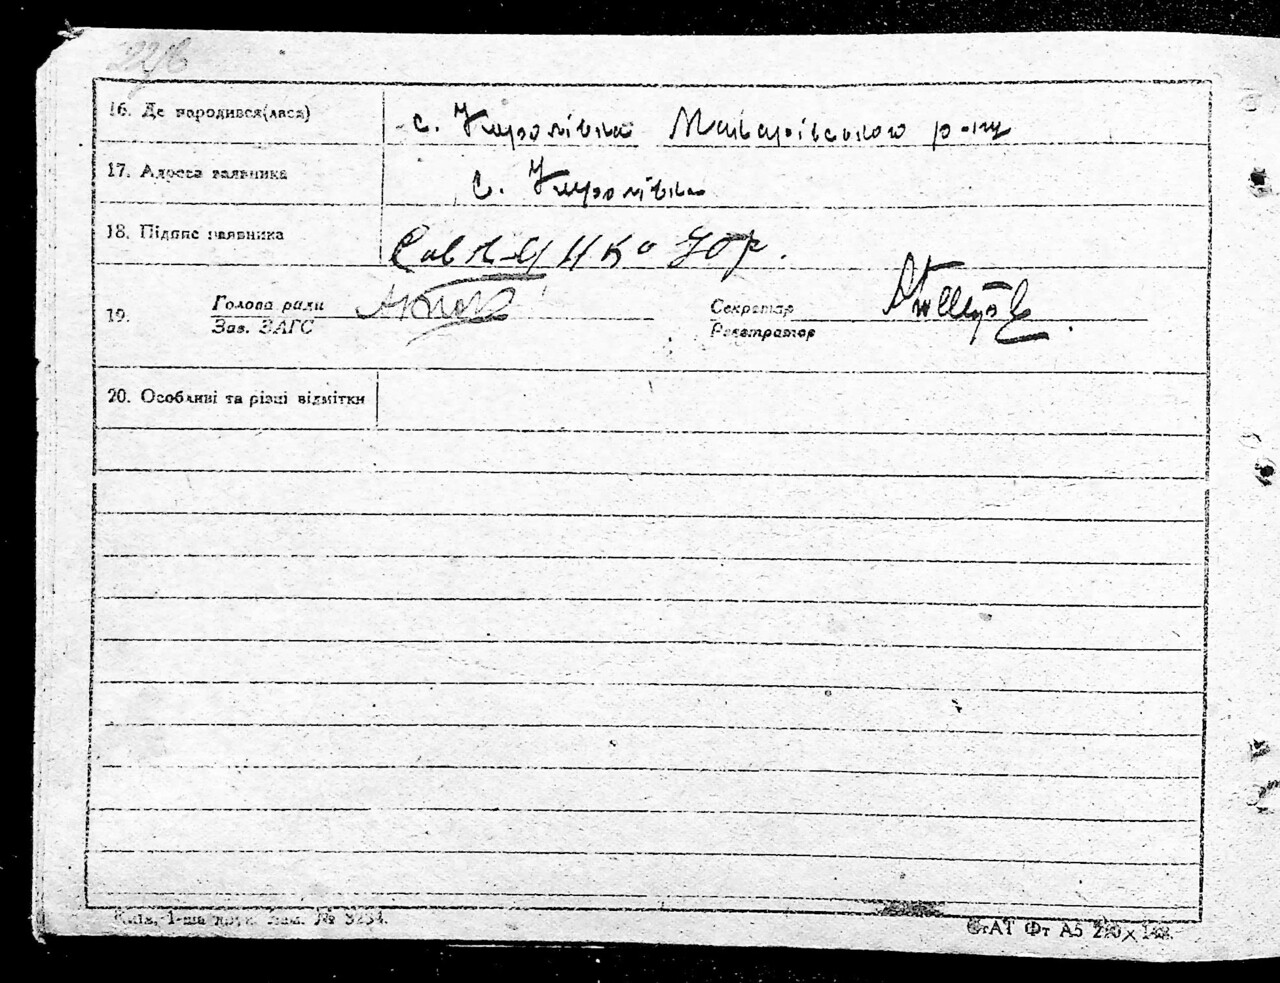 226
16. Де народився(лася) с. Королівка Макарівського р-ну
17. Адреса заявника с. Королівка
18. Підпис заявника Савенко Юр.
19. Голова ради Секретар
Зав. ЗАГС Реєстратор
20. Особливі та різні відмітки
Київ, 1-ша друк. Зам. № 3254.
СтАТ Фт А5 210×148.